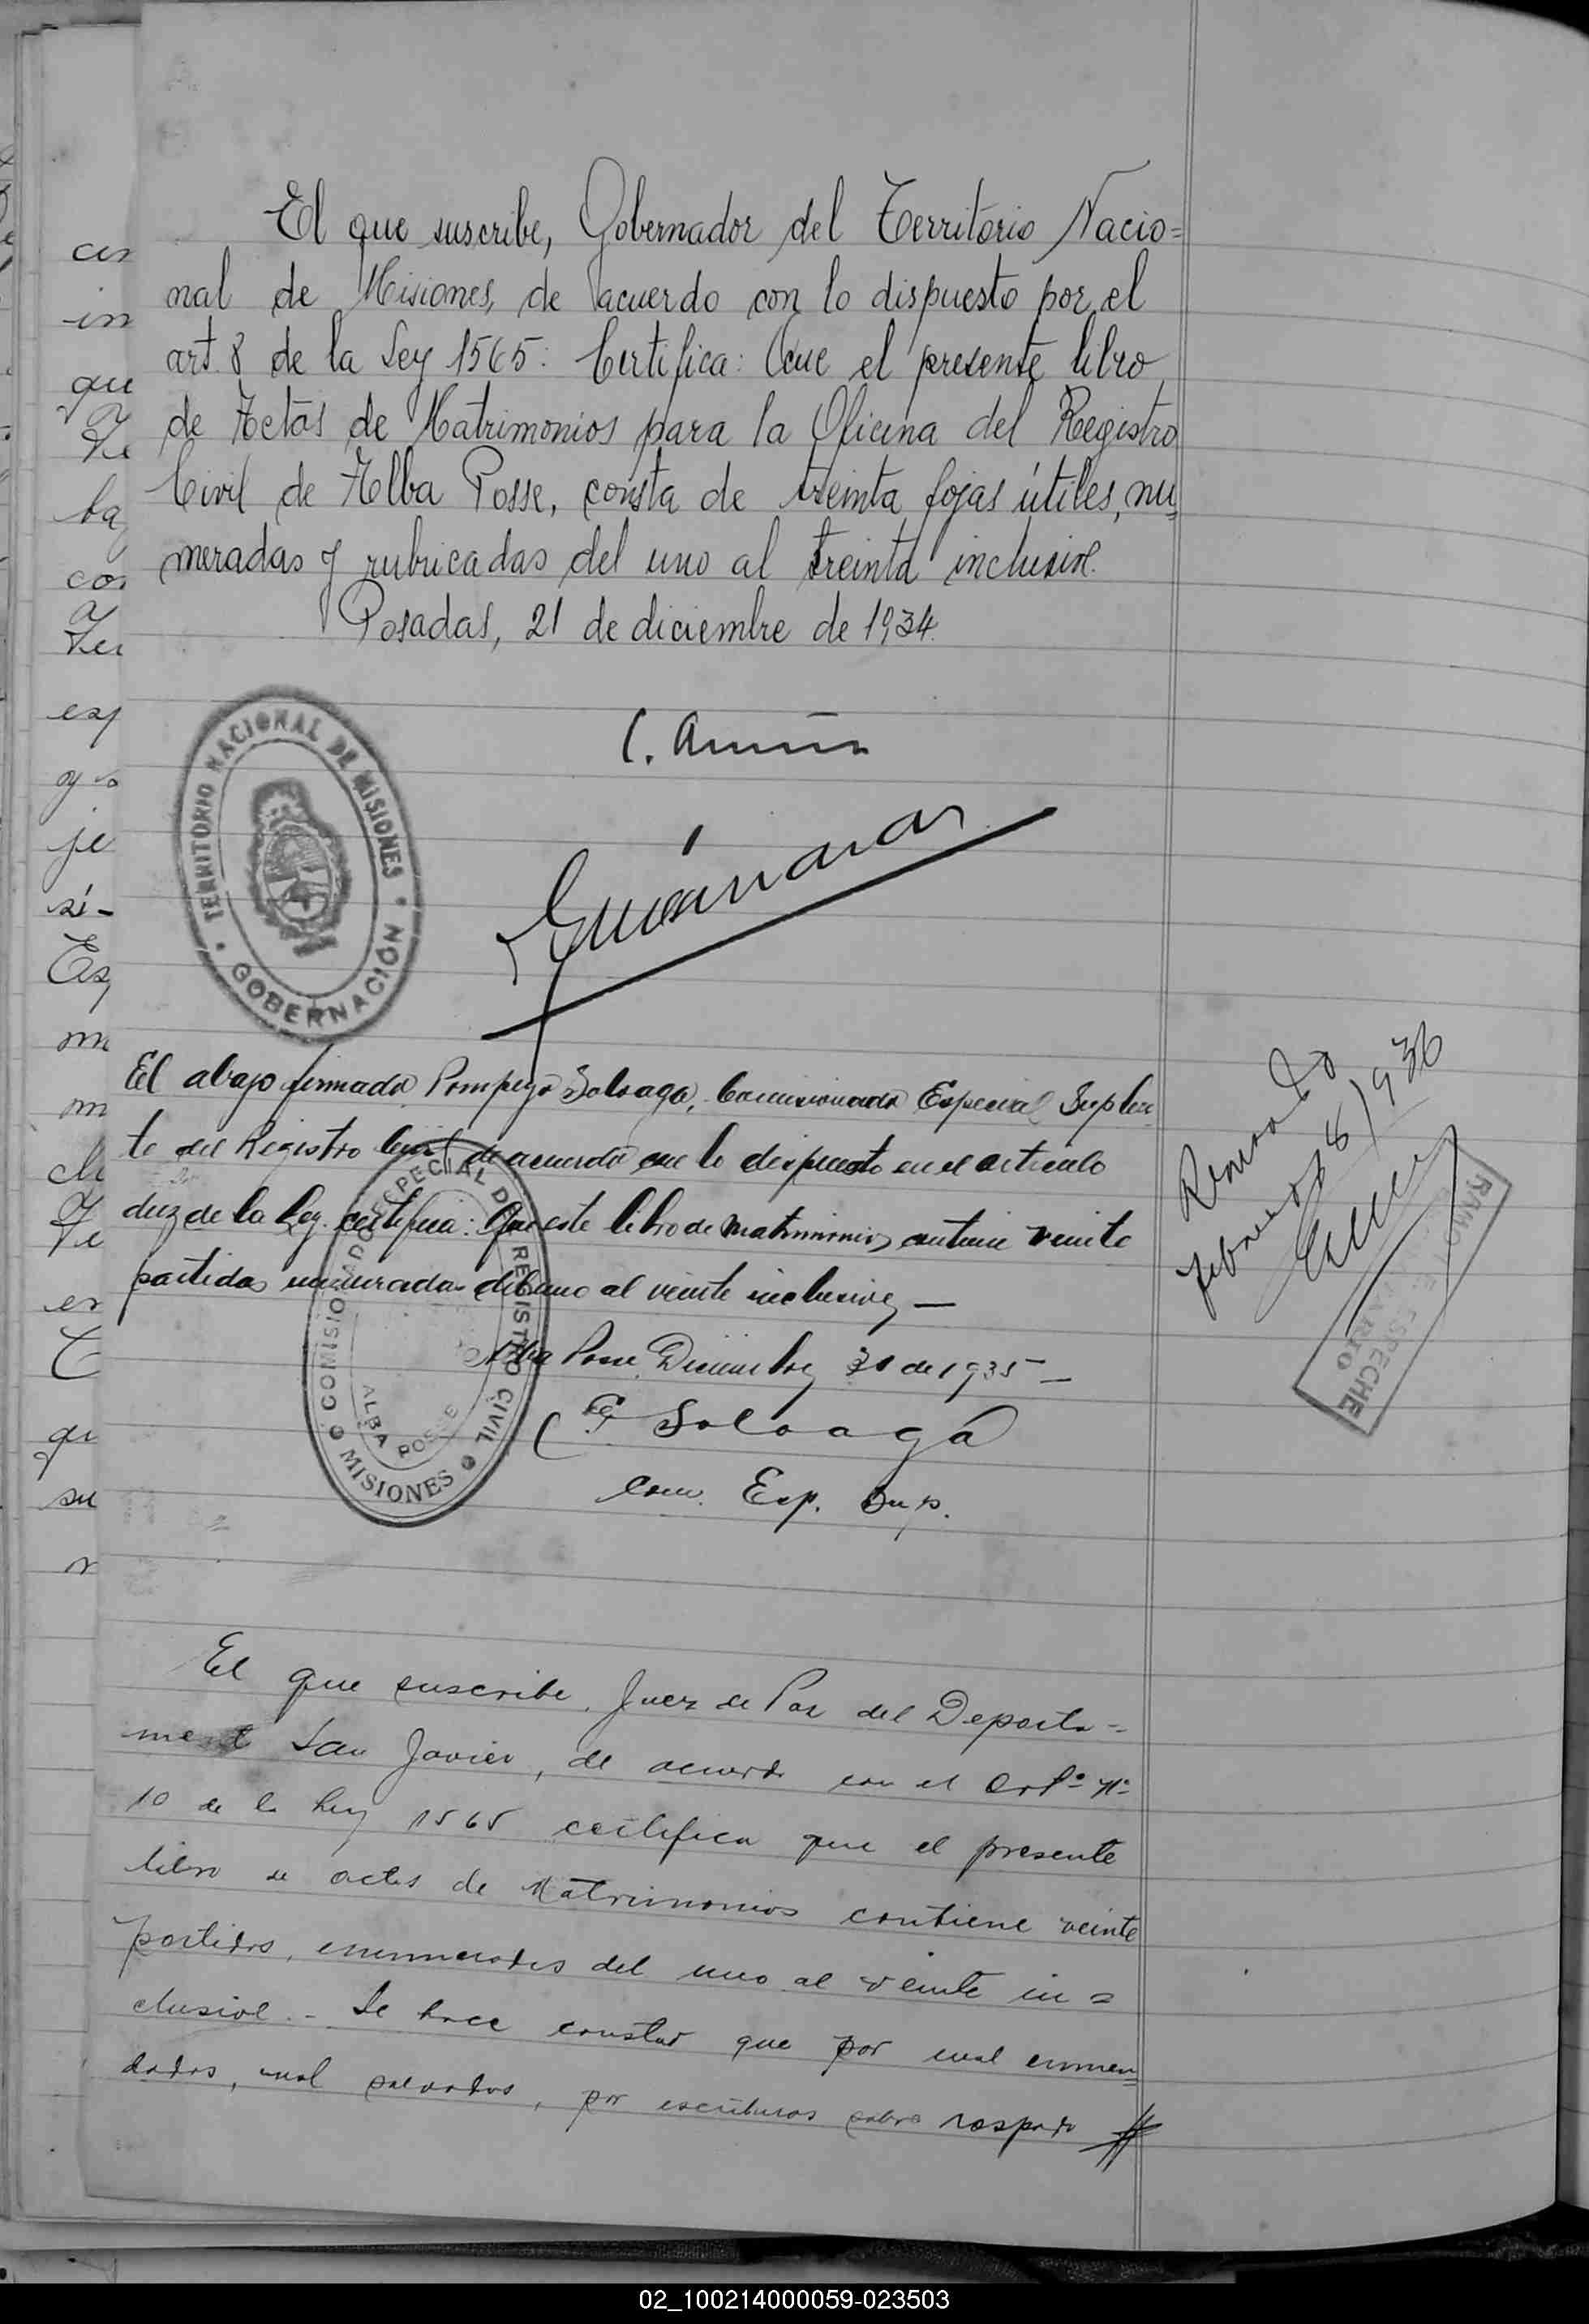 El que suscribe, Gobernador del Territorio Nacio=
nal de Misiones, de acuerdo con lo dispuesto por el
art. 8 de la Ley 1565: Certifica: Que el presente libro
de Actas de Matrimonios para la Oficina del Registro
Civil de Alba Posse, consta de treinta fojas útiles, nu=
meradas y rubricadas del uno al treinta inclusive.
Posadas, 21 de diciembre de 1934.
TERRITORIO NACIONAL DE MISIONES
GOBERNACIÓN
El abajo firmado Pompeyo Soloaga, Comisionado Especial Suplen-
te del Registro Civil de acuerdo con lo dispuesto en el artículo
diez de la Ley. certifica: Que este libro de matrimonios contiene veinte
partidas enumeradas del uno al veinte inclusive, —
Alba Posse, Diciembre 31 de 1935 —
P Soloaga
Com. Esp. Sup.
COMISIONADO ESPECIAL DE REGISTRO CIVIL
ALBA POSSE
MISIONES
febrero 18/936
El que suscribe, Juez de Paz del Departa=
ment San Javier, de acuerdo con el Artº Nº
10 de la Ley 1565 certifica que el presente
libro de actas de Matrimonios contiene veinte
partidas, enumeradas del uno al veinte in=
clusive. - Se hace constar que por mal enmen=
dados, mal salvados, por escrituras sobre raspado //
02_100214000059-023503